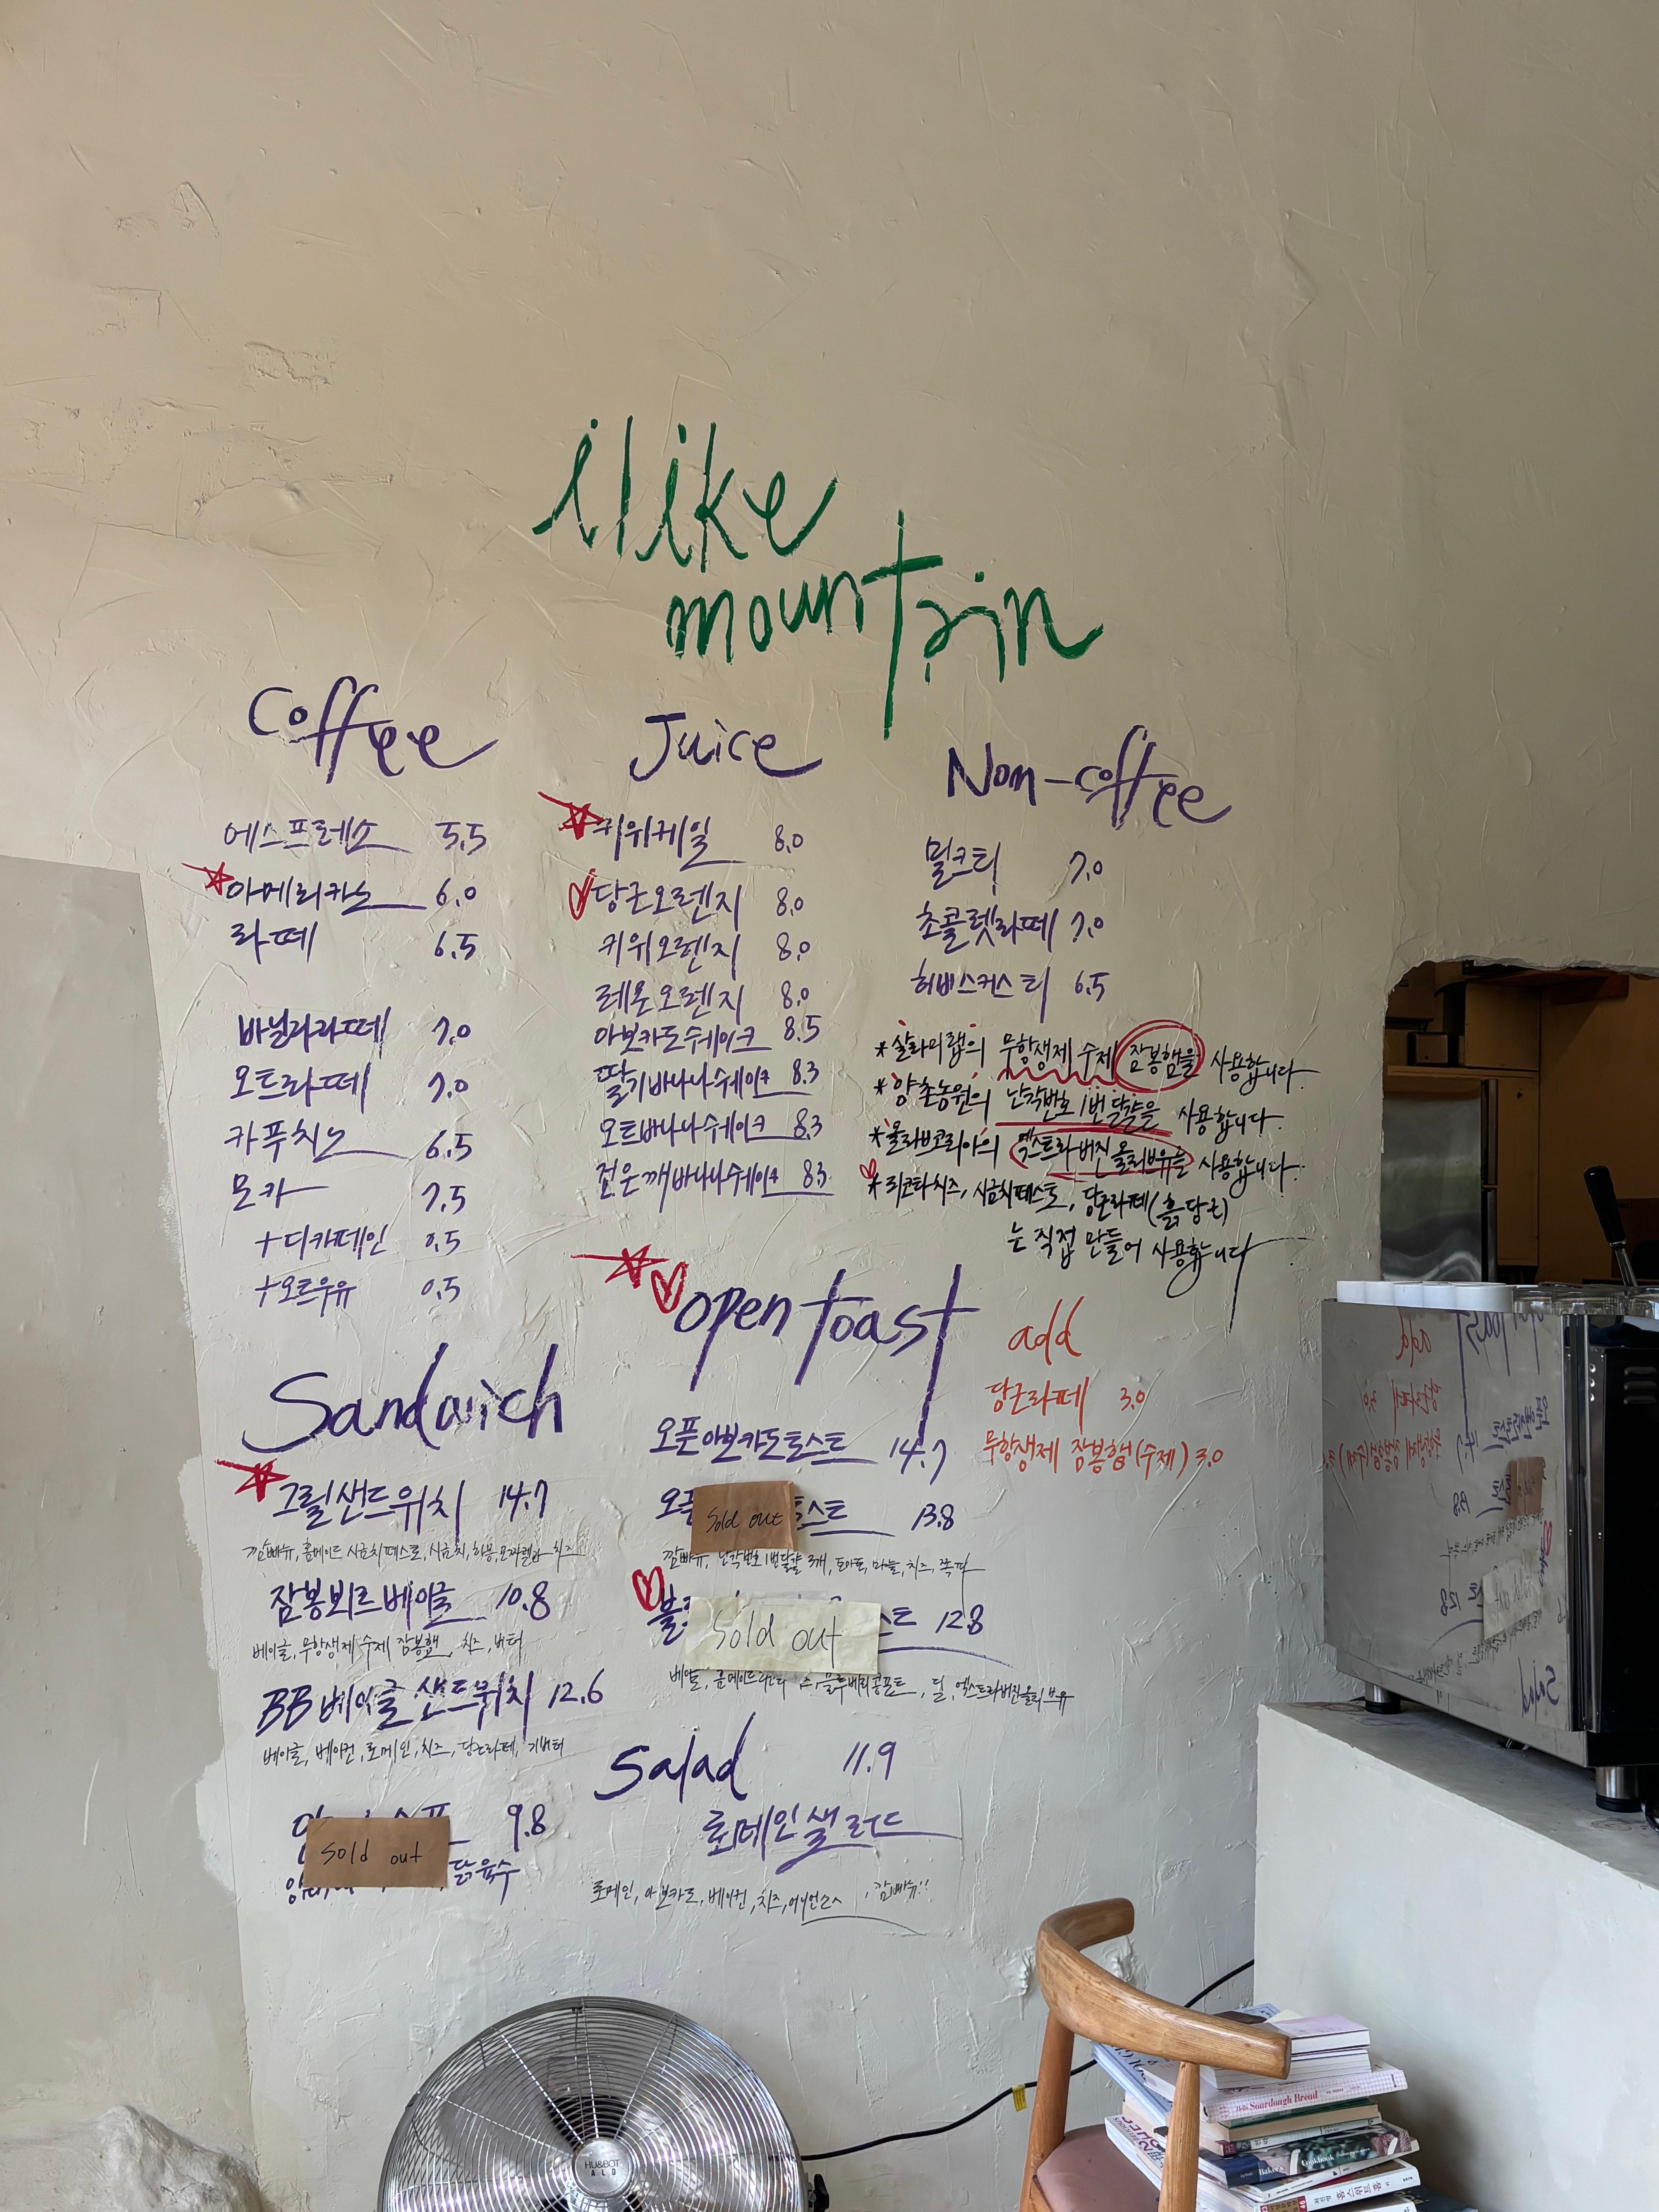 i like
mountain
Coffee
에스프레소 5.5
아메리카노 6.0
라떼 6.5
바닐라라떼 7.0
오트라떼 7.0
카푸치노 6.5
모카 7.5
+디카페인 0.5
+오트우유 0.5
Juice
키위케일 8.0
당근오렌지 8.0
키위오렌지 8.0
레몬오렌지 8.0
아보카도쉐이크 8.5
딸기바나나쉐이크 8.3
오트바나나쉐이크 8.3
검은깨바나나쉐이크 8.3
Non-coffee
밀크티 7.0
초콜렛라떼 7.0
히비스커스티 6.5
*살라미랩의 무항생제 수제 잠봉햄을 사용합니다.
*양촌농원의 난각번호 1번 달걀을 사용합니다.
*올리브코리아의 엑스트라버진올리브유를 사용합니다.
*리코타치즈, 시금치페스토, 당근라페(흙당근)
는 직접 만들어 사용합니다
Sandwich
그릴샌드위치 14.7
깜빠뉴, 홈메이드 시금치페스토, 시금치, 잠봉, 모짜렐라 치즈
잠봉뵈르베이글 10.8
베이글, 무항생제 수제 잠봉햄, 치즈, 버터
BB베이글 샌드위치 12.6
베이글, 베이컨, 로메인, 치즈, 당근라페, 기버터
9.8
Sold out
닭육수
open toast
오픈아보카도토스트 14.7
오픈 토스트 13.8
Sold out
깜빠뉴, 난각번호 1번달걀 3개, 토마토, 마늘, 치즈, 쪽파
블 스트 12.8
Sold out
베이글, 홈메이드리코타 블루베리콩포트, 딜, 엑스트라버진올리브유
add
당근라페 3.0
무항생제 잠봉햄(수제) 3.0
Salad 11.9
로메인샐러드
로메인, 아보카도, 베이컨, 치즈, 어니언소스, 깜빠뉴!!
HUBBOT
ALD
Sourdough Bread
Baker's Cookbook